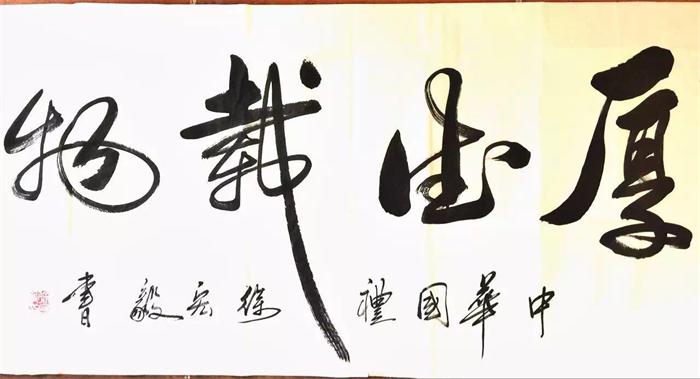 厚德載物
中華國禮 徐宏毅書